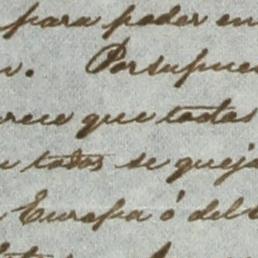 para poder en
n. Porsupue
rece que todas
n todos se queja
Europa ó del